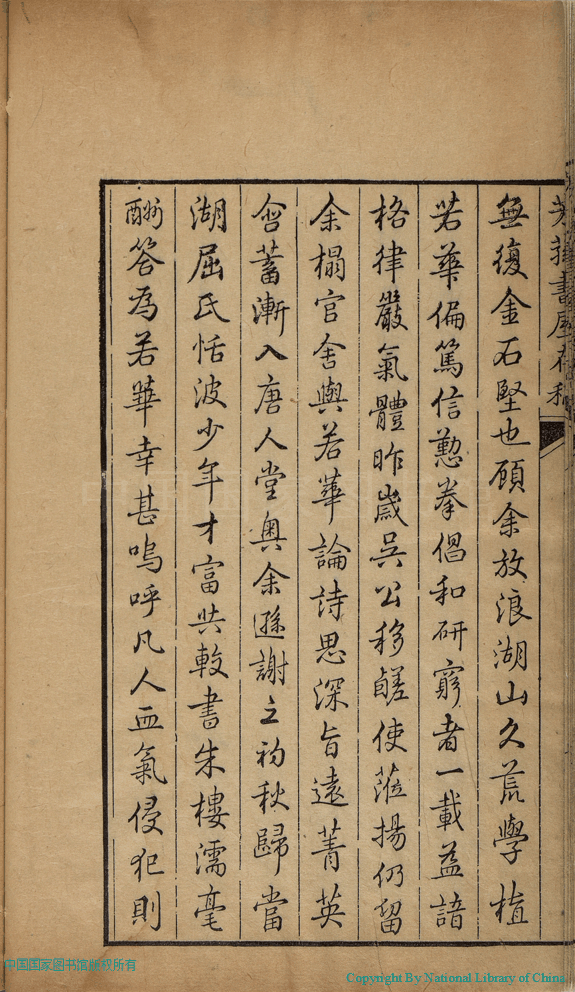 無復金石堅也顧余放浪湖山久荒學植
若華偏篤信懃拳倡和研窮者一載益諳
格律嚴氣體昨嵗吳公移鹺使蒞揚仍留
余榻官舍與若華論詩思深旨遠菁英
含蓄漸入唐人堂奧余遜謝之初秋歸當
湖屈氏恬波少年才富共較書朱樓濡毫
酬答為若華幸甚嗚呼凡人血氣侵犯則
書屋存稿
中国国家图书馆版权所有
Copyright By National Library of China